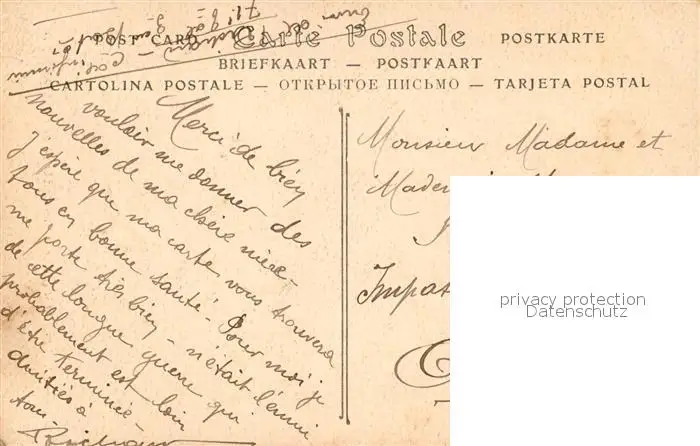 POST CARD Carte Postale POSTKARTE
BRIEFKAART — POSTKAART
CARTOLINA POSTALE — ОТКРЫТОЕ ПИСЬМО — TARJETA POSTAL
Merci de bien
vouloir me donner des
nouvelles de ma chère mère -
J'espère que ma carte vous trouvera
tous en bonne santé - Pour moi je
me porte très bien - n'était l'ennui
de cette longue guerre qui
probablement est loin
d'être terminée -
Amitiés à
tous
Monsieur Madame et
Impas
privacy protection
Datenschutz